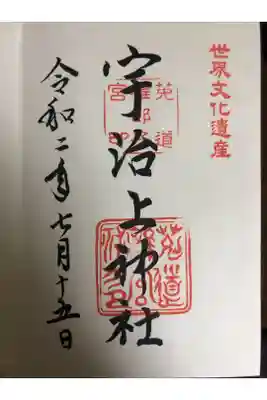 世界文化遺産
宇治上神社
令和二年七月十五日